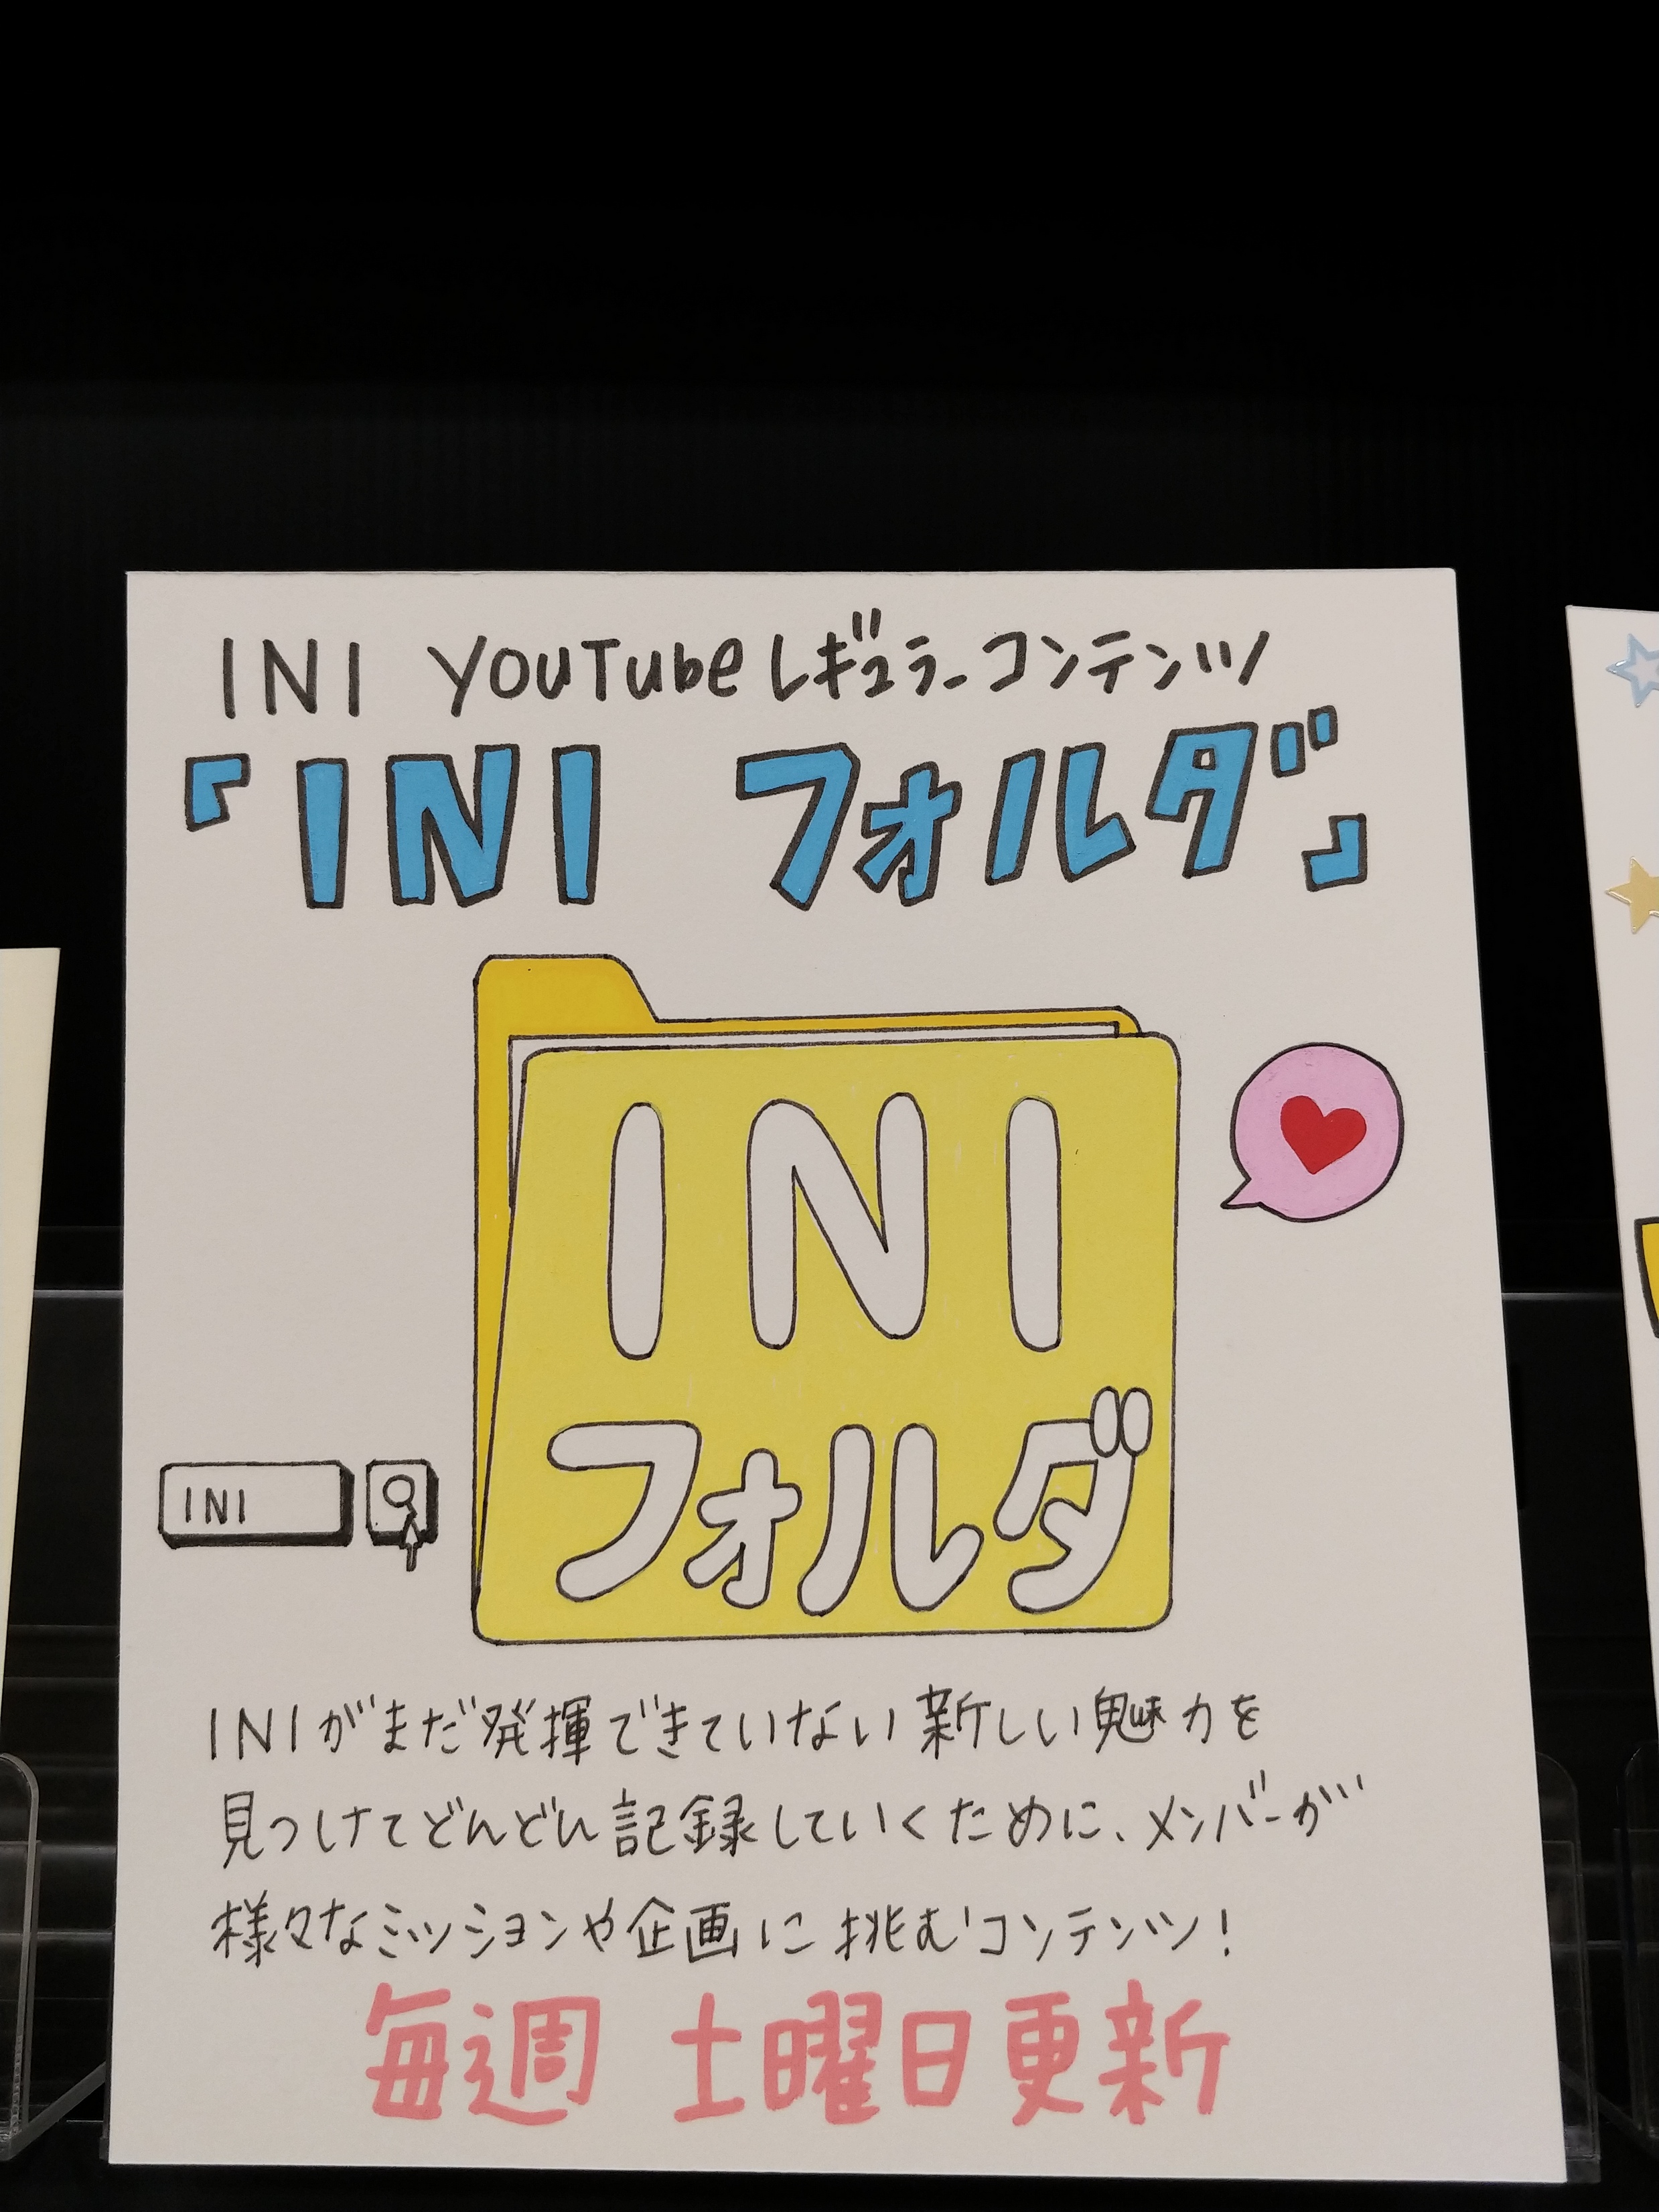 INI YouTubeレギュラーコンテンツ
『INI フォルダ』
INI
フォルダ
INI
INIがまだ発揮できていない新しい魅力を
見つけてどんどん記録していくために、メンバーが
様々なミッションや企画に挑むコンテンツ!
毎週 土曜日更新